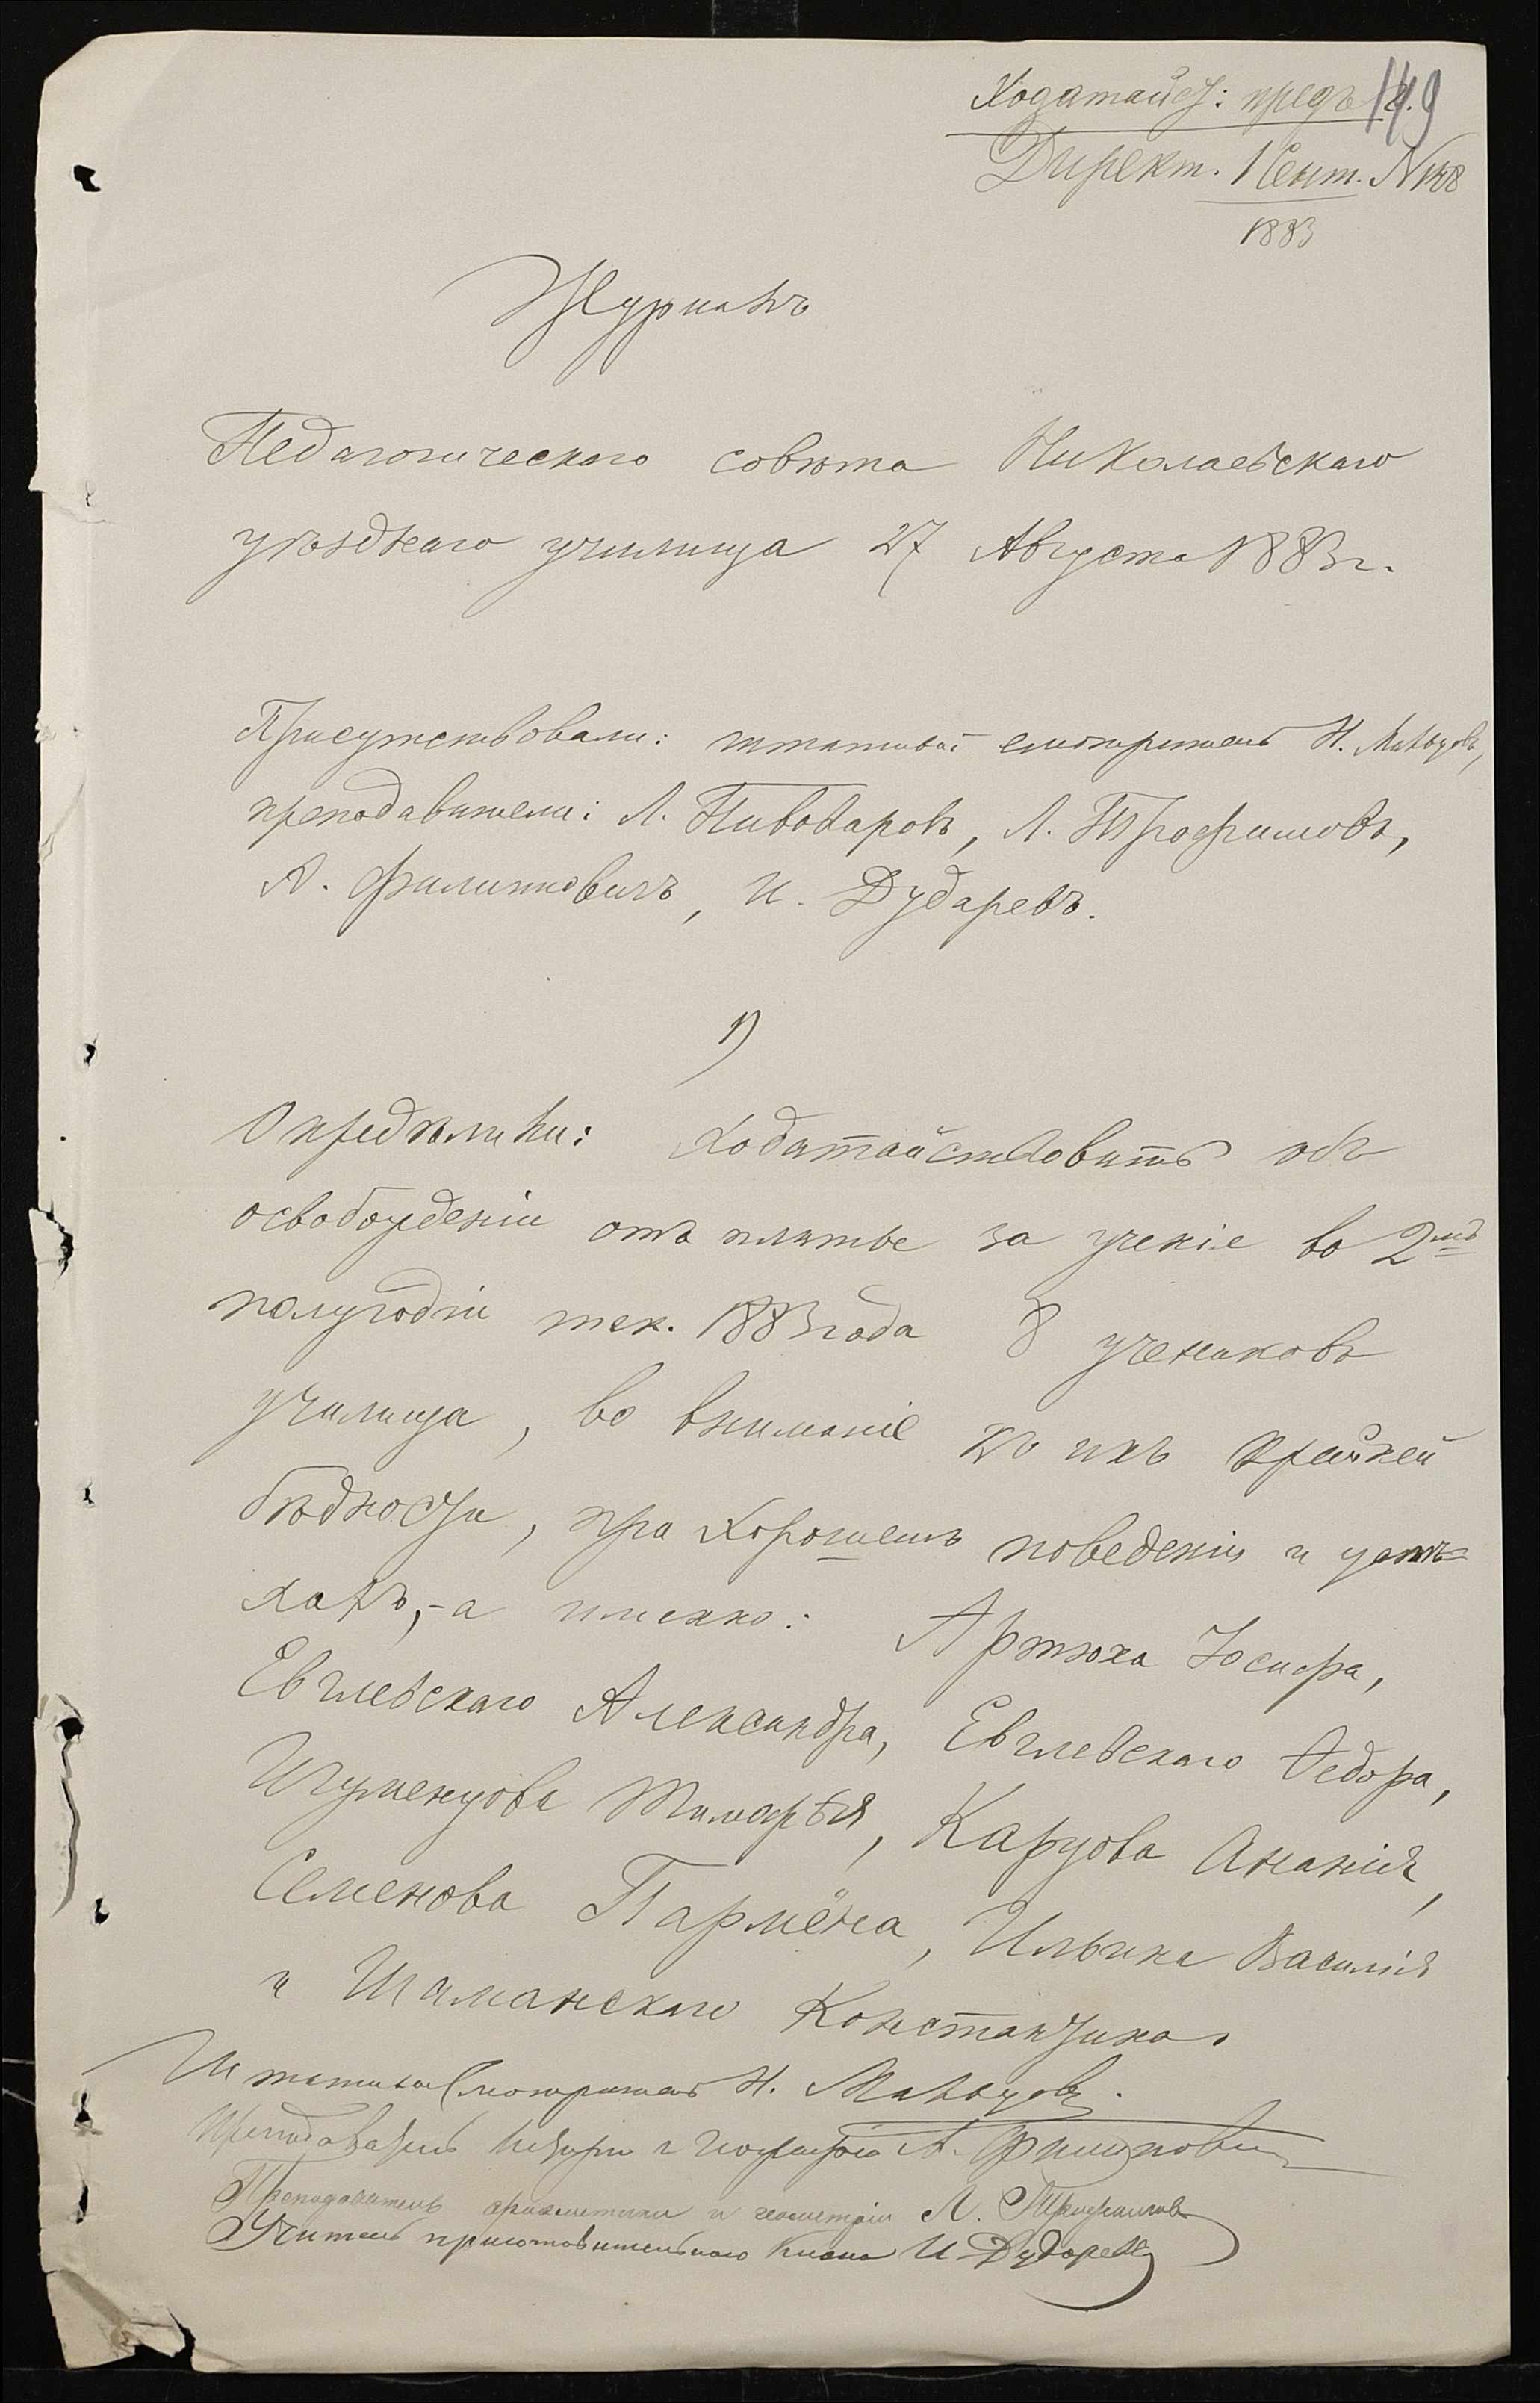 149
Ходатайст: предъ г.
Директ. 1 Сент. N 188
1883
Журналъ
Педагогическаго совѣта Николаевскаго
уѣзднаго училища 27 Августа 1883 г.
Присутствовали: штатный смотритель Н.
преподаватели: Л. Пивоваровъ, Л. Трофимовъ,
А. Филипповичъ, И. Дударевъ.
1)
Опредѣлили: Ходатайствовать объ
освобожденіи отъ платы за ученіе во 2мъ
полугодіи тек. 1883 года 8 учениковъ
училища, во вниманіе къ ихъ крайней
бѣдности, при хорошемъ поведеніи и успѣ=
хахъ,-а именно: Артюха Іосифа,
Евглевскаго Александра, Евглевскаго Ѳедора,
Игуменцова Тимофѣя, Карцова Ананія,
Семенова Пармёна, Ильина Василія
и Шиманскаго Константина.
Штатный Смотритель Н.
Преподаватель исторіи и географіи А. Филипповичъ
Преподаватель ариѳметики и геометріи Л. Трофимовъ
Учитель приготовительнаго класса И. Дударевъ